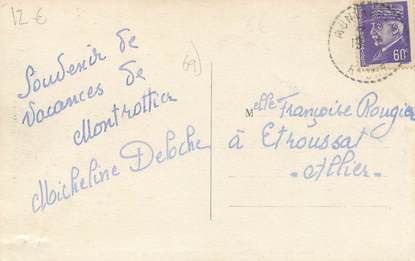 12 €
69)
Souvenir de
vacances de
Montrottier
Micheline Deloche
Melle Françoise Rougier
à Etroussat
- Allier -
60c